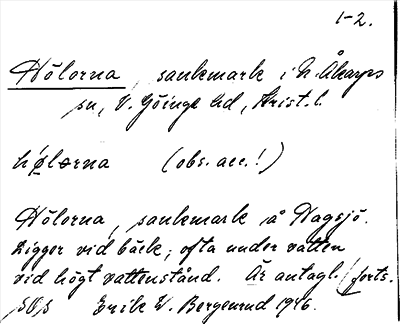 1-2.
Hölorna, sankmark i N. Åkarps
sn, V. Göinge hd, Krist. l.
hø̀lærna (obs. acc.!)
Hölorna, sankmark å Hagsjö.
Ligger vid bäck; ofta under vatten
vid högt vattenstånd. Är antagl. / forts.
Erik W. Bergenrud 1916.